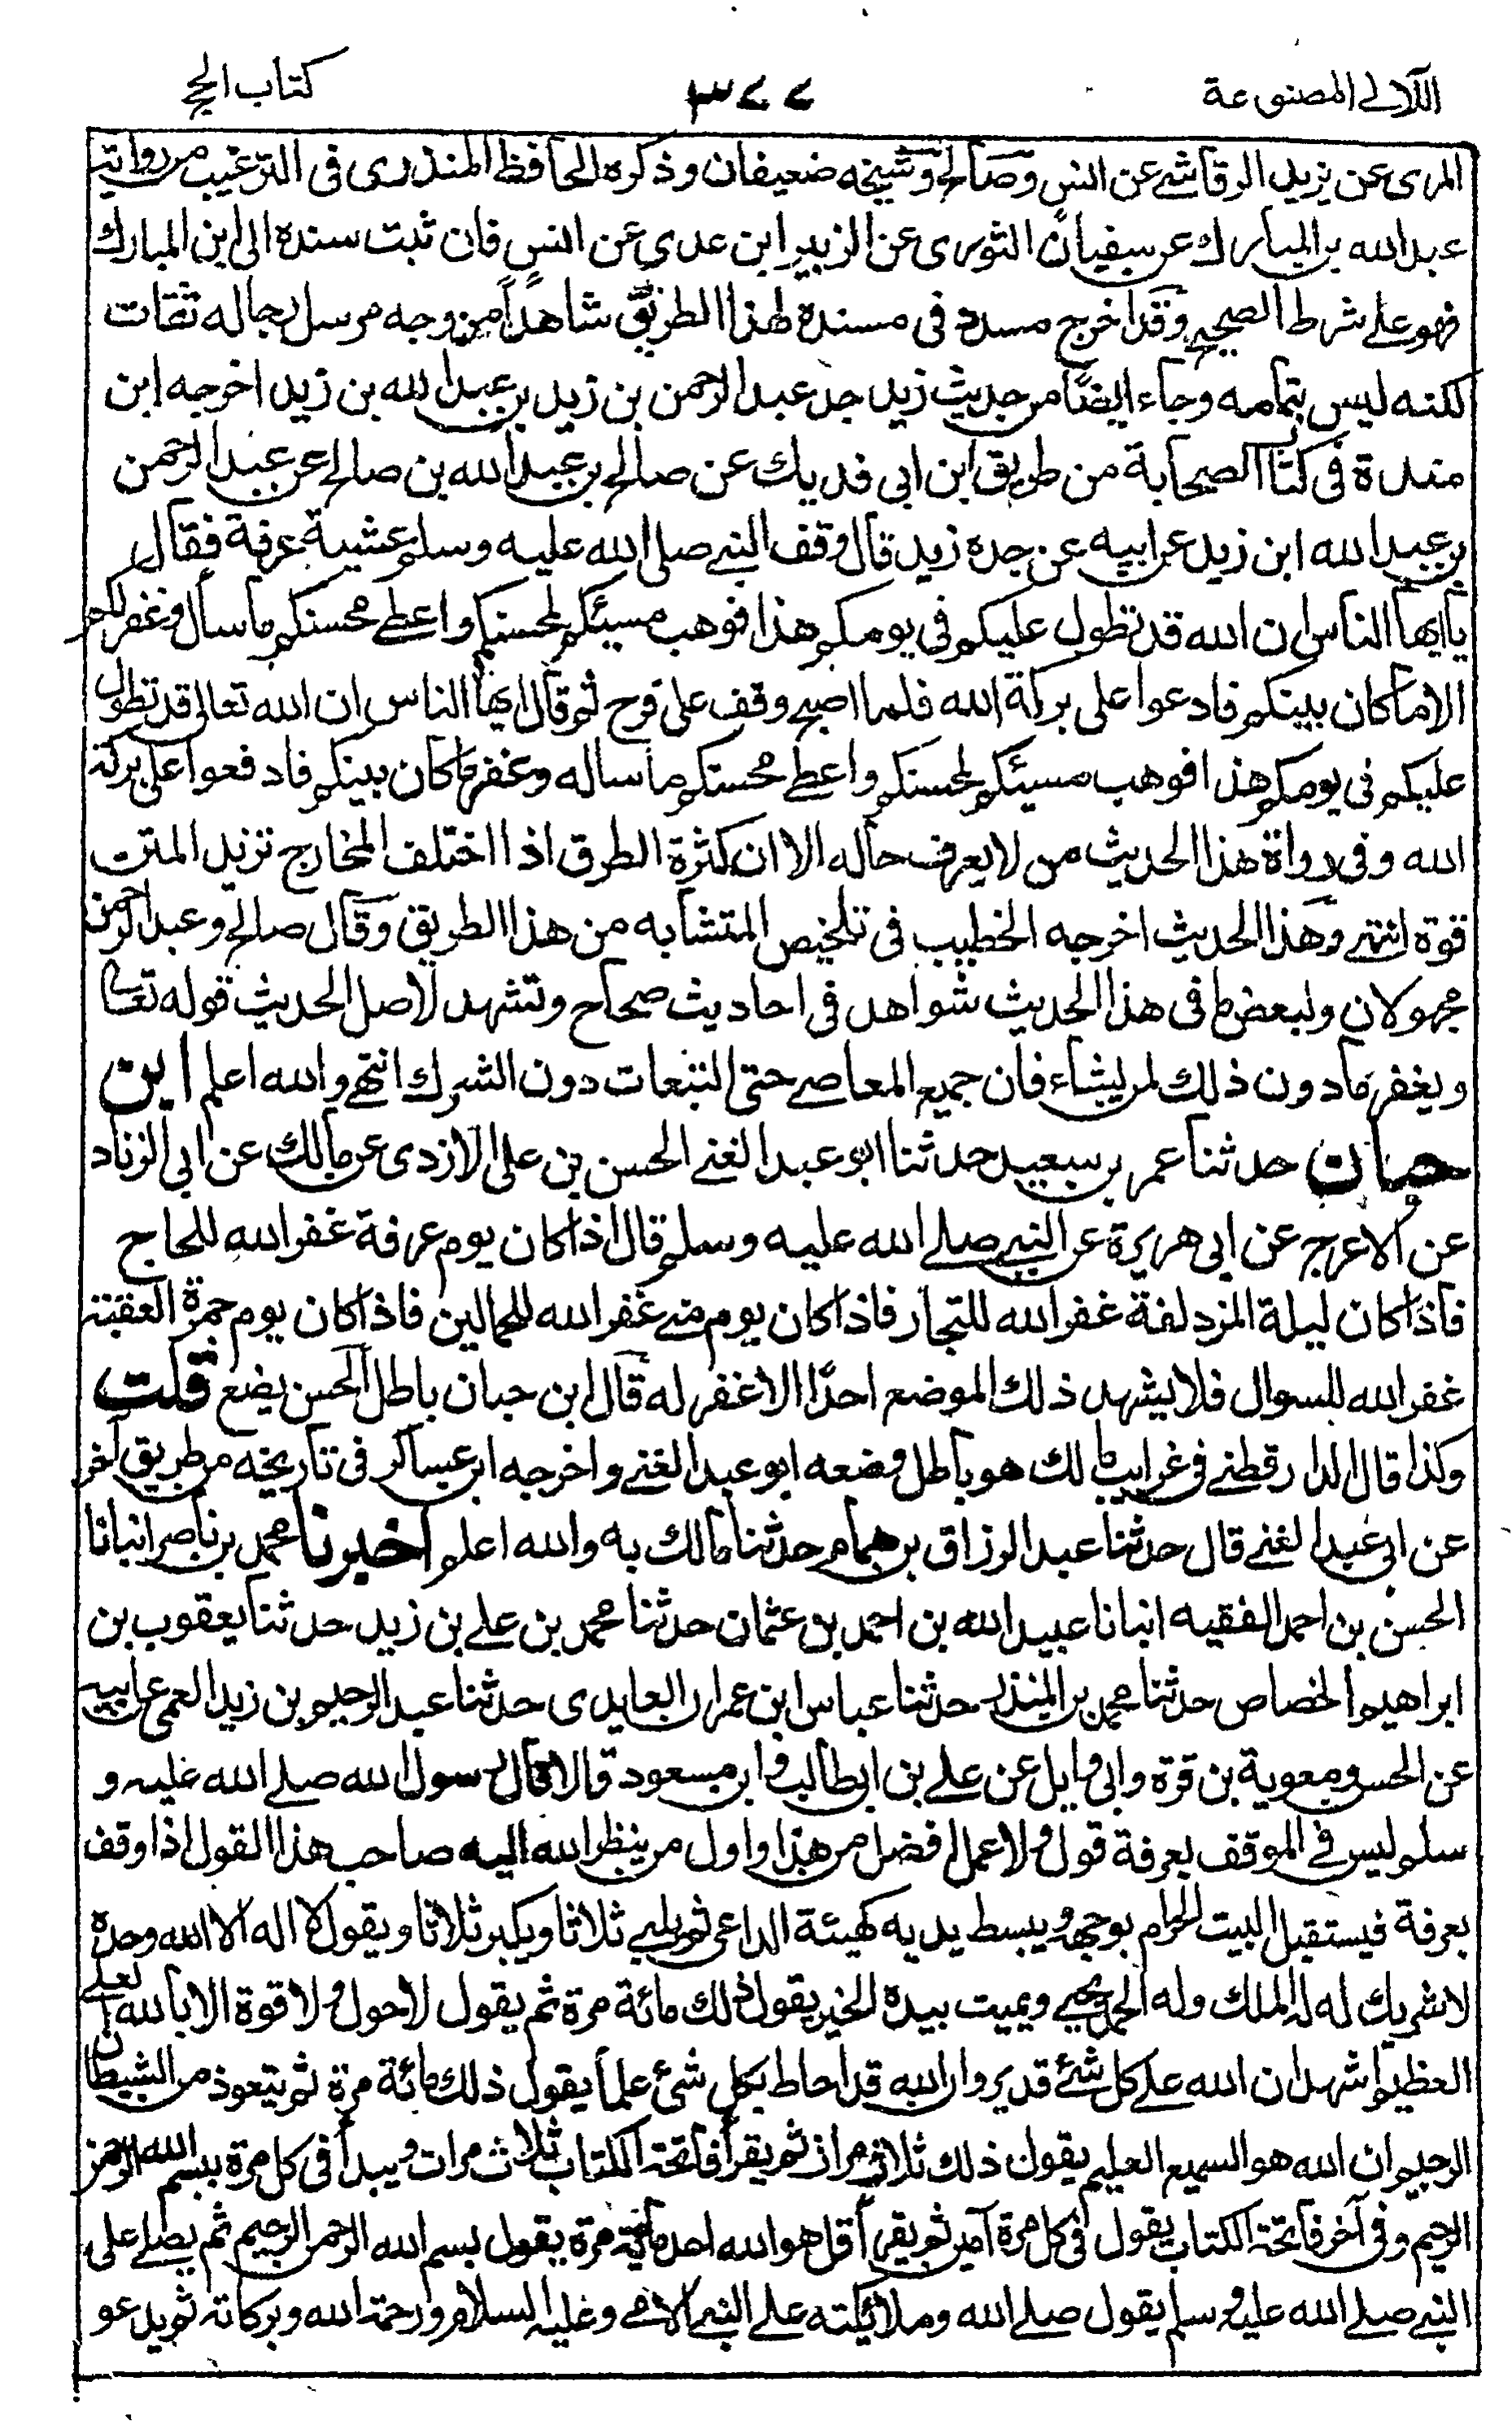 اللآلي المصنوعة
٣٧٧
كتاب الحج
المرى عن يزيد الرقاشے عن انس وصالح وشيخه ضعيفان وذكره الحافظ المنذرى فى الترغيب من رواية
عبد الله بن المبارك عن سفيان الثورى عن الزبير ابن عدي عن انس فان ثبت سنده الى ابن المبارك
فهو علے شرط الصحيح وقد اخرج مسدد فى مسنده لهذا الطريق شاهداً من وجه مرسل رجاله ثقات
لكنه ليس بتمامه وجاء ايضًا من حديث زيد جد عبد الرحمن بن زيد بن عبد الله بن زيد اخرجه ابن
مندة فى كتاب الصحابة من طريق ابن ابى فديك عن صالح بن عبد الله بن صالح عن عبد الرحمن
بن عبد الله ابن زيد عن ابيه عن جده زيد قال وقف النبے صلى الله عليه وسلم عشية عرفة فقال
يا ايها الناس ان الله قد تطول عليكم فى يومكم هذا فوهب مسيئكم لمحسنكم واعطے محسنكم ما سأل وغفر لكم
الا ما كان بينكم فادعوا على بركة الله فلما اصبح وقف على قزح ثم قال ايها الناس ان الله تعالى قد تطول
عليكم فى يومكم هذا فوهب مسيئكم لمحسنكم واعطے محسنكم ما ساله وغفر ما كان بينكم فادفعوا على بركة
الله وفى رواة هذا الحديث من لا يعرف حاله الا ان كثرة الطرق اذا اختلف المخارج تزيد المتن
قوة انتهے وهذا الحديث اخرجه الخطيب فى تلخيص المتشابه من هذا الطريق وقال صالح وعبد الرحمن
مجهولان ولبعض ما فى هذا الحديث شواهد فى احاديث صحاح وتشهد لاصل الحديث قوله تعالى
ويغفر ما دون ذلك لمن يشاء فان جميع المعاصے حتى التبعات دون الشرك انتهى والله اعلم ابن
حبان حدثنا عمر بن سعيد حدثنا ابو عبد الغنے الحسن بن على الازدى عن مالك عن ابى الزناد
عن الاعرج عن ابى هريرة عن النبے صلے الله عليه وسلم قال اذا كان يوم عرفة غفر الله للحاج
فاذا كان ليلة المزدلفة غفر الله للتجار فاذا كان يوم منے غفر الله للجمالين فاذا كان يوم جمرة العقبة
غفر الله للسوال فلا يشهد ذلك الموضع احدًا الا غفر له قال ابن حبان باطل الحسن يضع قلت
وكذا قال الدارقطنے فى غرايب مالك هو باطل وضعه ابو عبد الغنے واخرجه ابن عساكر فى تاريخه من طريق آخر
عن ابى عبد الغنے قال حدثنا عبد الرزاق بن همام حدثنا مالك به والله اعلم اخبرنا محمد بن ناصر انبانا
الحسن بن احمد الفقيه انبانا عبيد الله بن احمد بن عثمان حدثنا محمد بن علے بن زيد حدثنا يعقوب بن
ابراهيم الخصاص حدثنا محمد بن المنذر حدثنا عباس ابن عمران العابدى حدثنا عبد الرحيم بن زيد العمى عن ابيه
عن الحسن ومعوية بن قرة وابى وايل عن علے بن ابى طالب وابن مسعود قالا قال رسول الله صلے الله عليه و
سلم ليس فے الموقف بعرفة قول ولا عمل افضل من هذا واول من ينظر الله اليه صاحب هذا القول اذا وقف
بعرفة فيستقبل البيت الحرام بوجهه ويبسط يديه كهيئة الداعى ثم يلبے ثلاثا ويكبر ثلاثا ويقول لا اله الا الله وحده
لا شريك له له الملك وله الحمد يحيے ويميت بيده الخير يقول ذلك مائة مرة ثم يقول لا حول ولا قوة الا بالله العلے
العظيم اشهد ان الله علے كل شئ قدير وان الله قد احاط بكل شئ علماً يقول ذلك مائة مرة ثم يتعوذ من الشيطان
الرجيم ان الله هو السميع العليم يقول ذلك ثلاث مرات ثم يقرأ فاتحة الكتاب ثلاث مرات ويبدأ فى كل مرة ببسم الله الرحمن
الرحيم وفى آخر فاتحة الكتاب يقول فى كل مرة آمين ثم يقرأ قل هو الله احد مائة مرة يقول بسم الله الرحمن الرحيم ثم يصلے على
النبے صلے الله عليه وسلم يقول صلے الله وملائكته علے النبے الامے وعليه السلام ورحمة الله وبركاته ثم يدعو